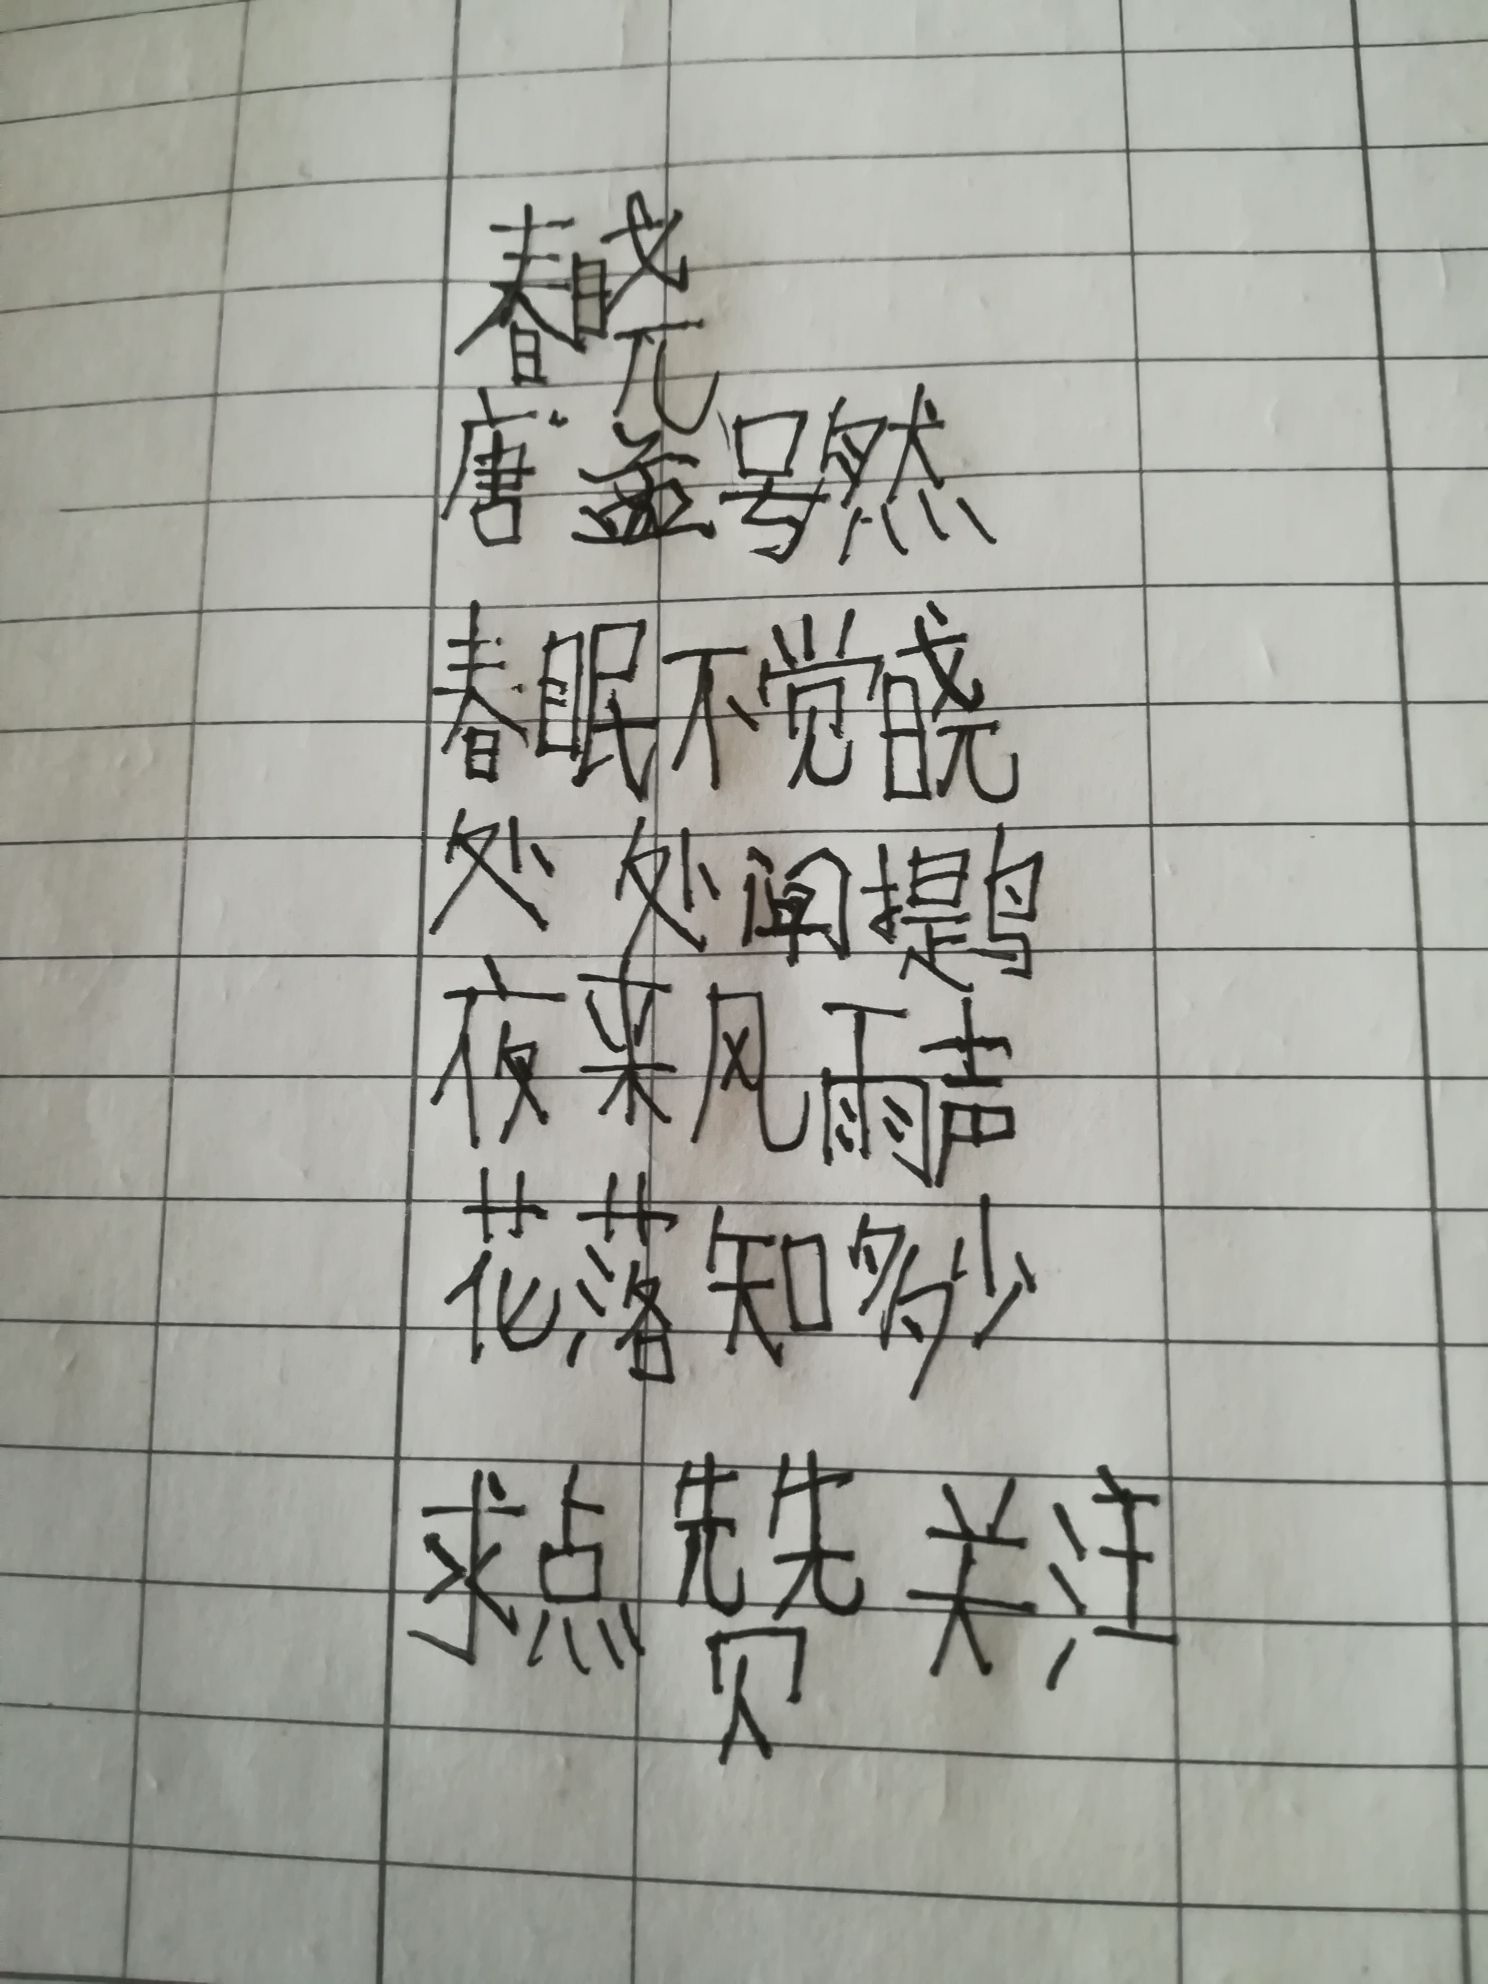 春晓
唐孟号然
春眠不觉晓
处处闻提鸟
夜来风雨声
花落知多少
求点赞关注